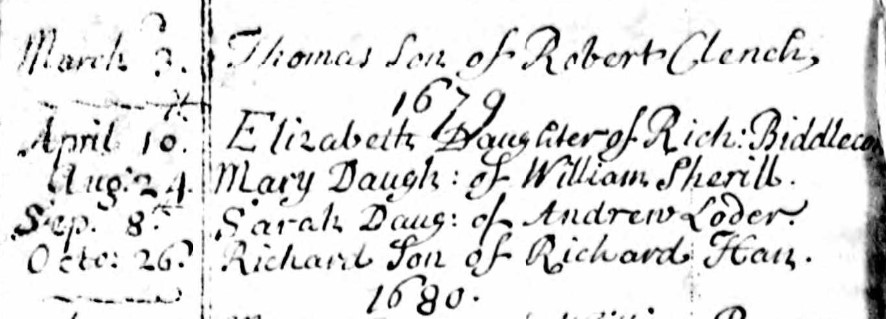 March 3. Thomas Son of Robert Clench,
1679
April 10. Elizabeth Daughter of Rich: Biddlecom
Aug: 24. Mary Daugh: of William Sherill.
Sep. 8th Sarah Daug: of Andrew Loder.
Octo: 26. Richard Son of Richard Han.
1680.